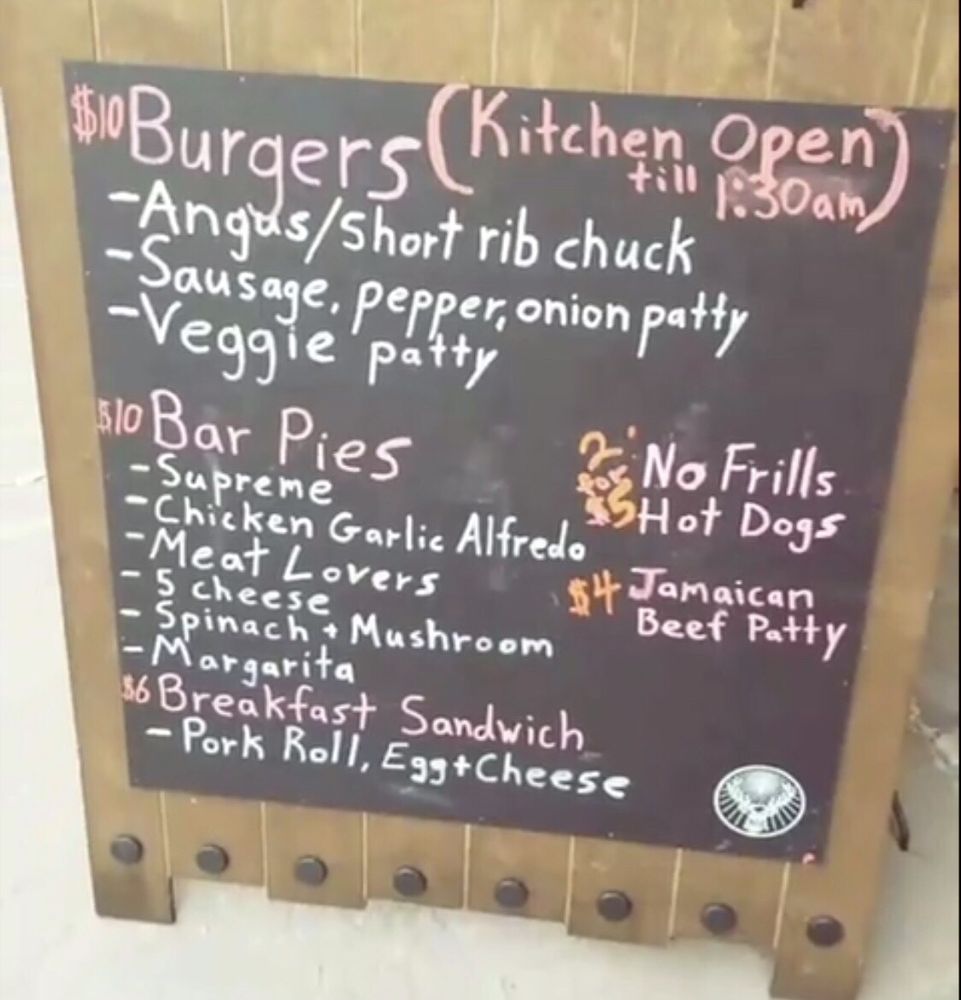 $10 Burgers (Kitchen Open
till 1:30am)
-Angus/Short rib chuck
-Sausage, pepper, onion patty
-Veggie patty
$10 Bar Pies
-Supreme
-Chicken Garlic Alfredo
-Meat Lovers
-5 cheese
-Spinach + Mushroom
-Margarita
2 for $5 No Frills
Hot Dogs
$4 Jamaican
Beef Patty
$6 Breakfast Sandwich
-Pork Roll, Egg+Cheese